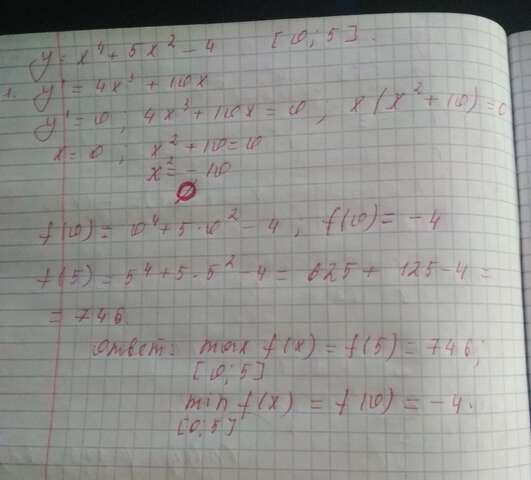 y = x⁴ + 5x² - 4 [0; 5].
1. y' = 4x³ + 10x
y' = 0; 4x³ + 10x = 0; x(x² + 10) = 0
x = 0; x² + 10 = 0
x² = - 10
∅
f(0) = 0⁴ + 5·0² - 4; f(0) = - 4
f(5) = 5⁴ + 5·5² - 4 = 625 + 125 - 4 =
= 746.
Ответ: max f(x) = f(5) = 746;
[0; 5]
min f(x) = f(0) = - 4.
[0; 5]